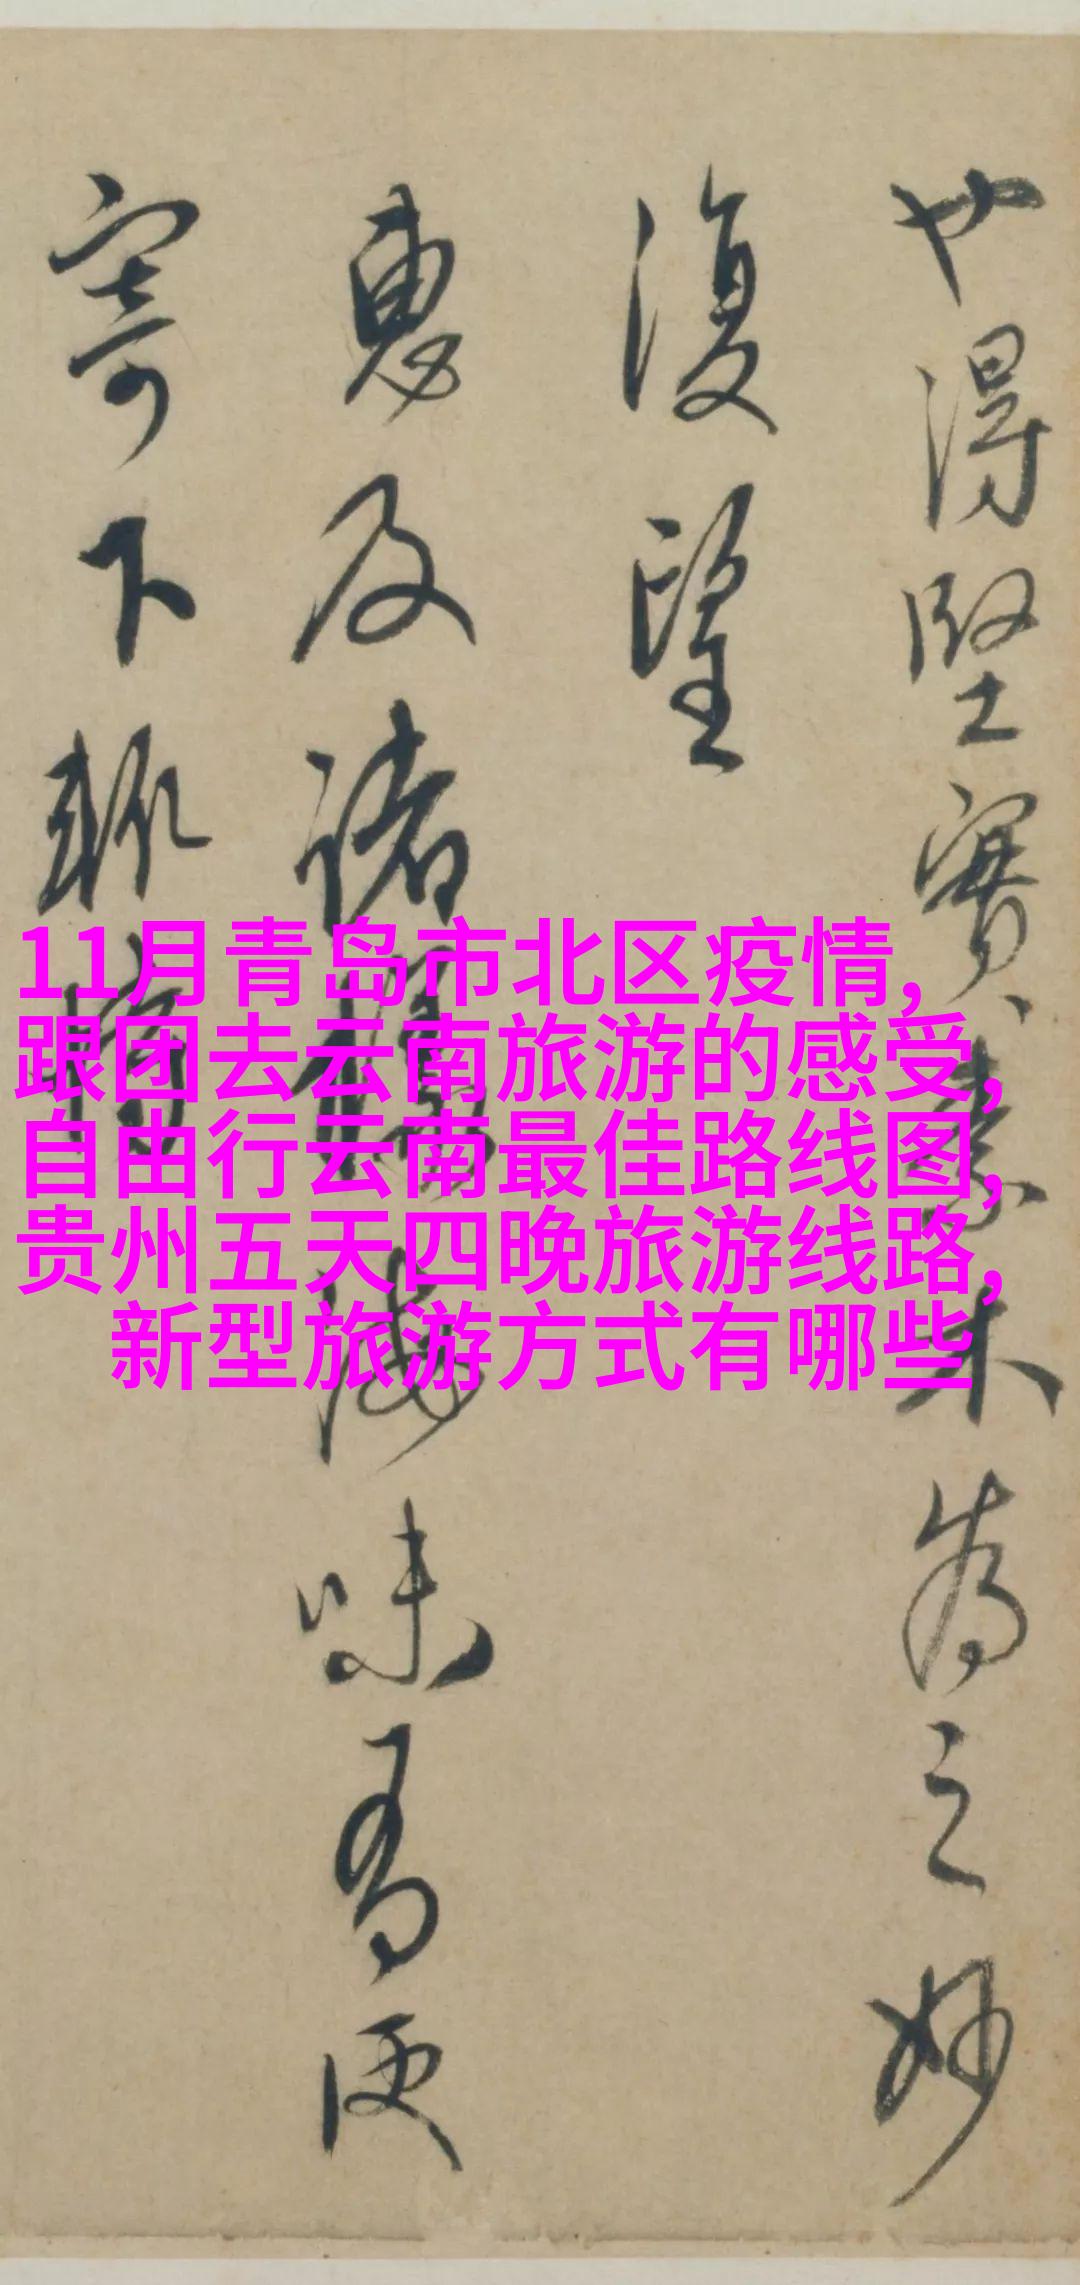 也得堅實為之妙
復望
惠及諸海味有便
寄下輒
11月青岛市北区疫情,
跟团去云南旅游的感受,
自由行云南最佳路线图,
贵州五天四晚旅游线路,
新型旅游方式有哪些